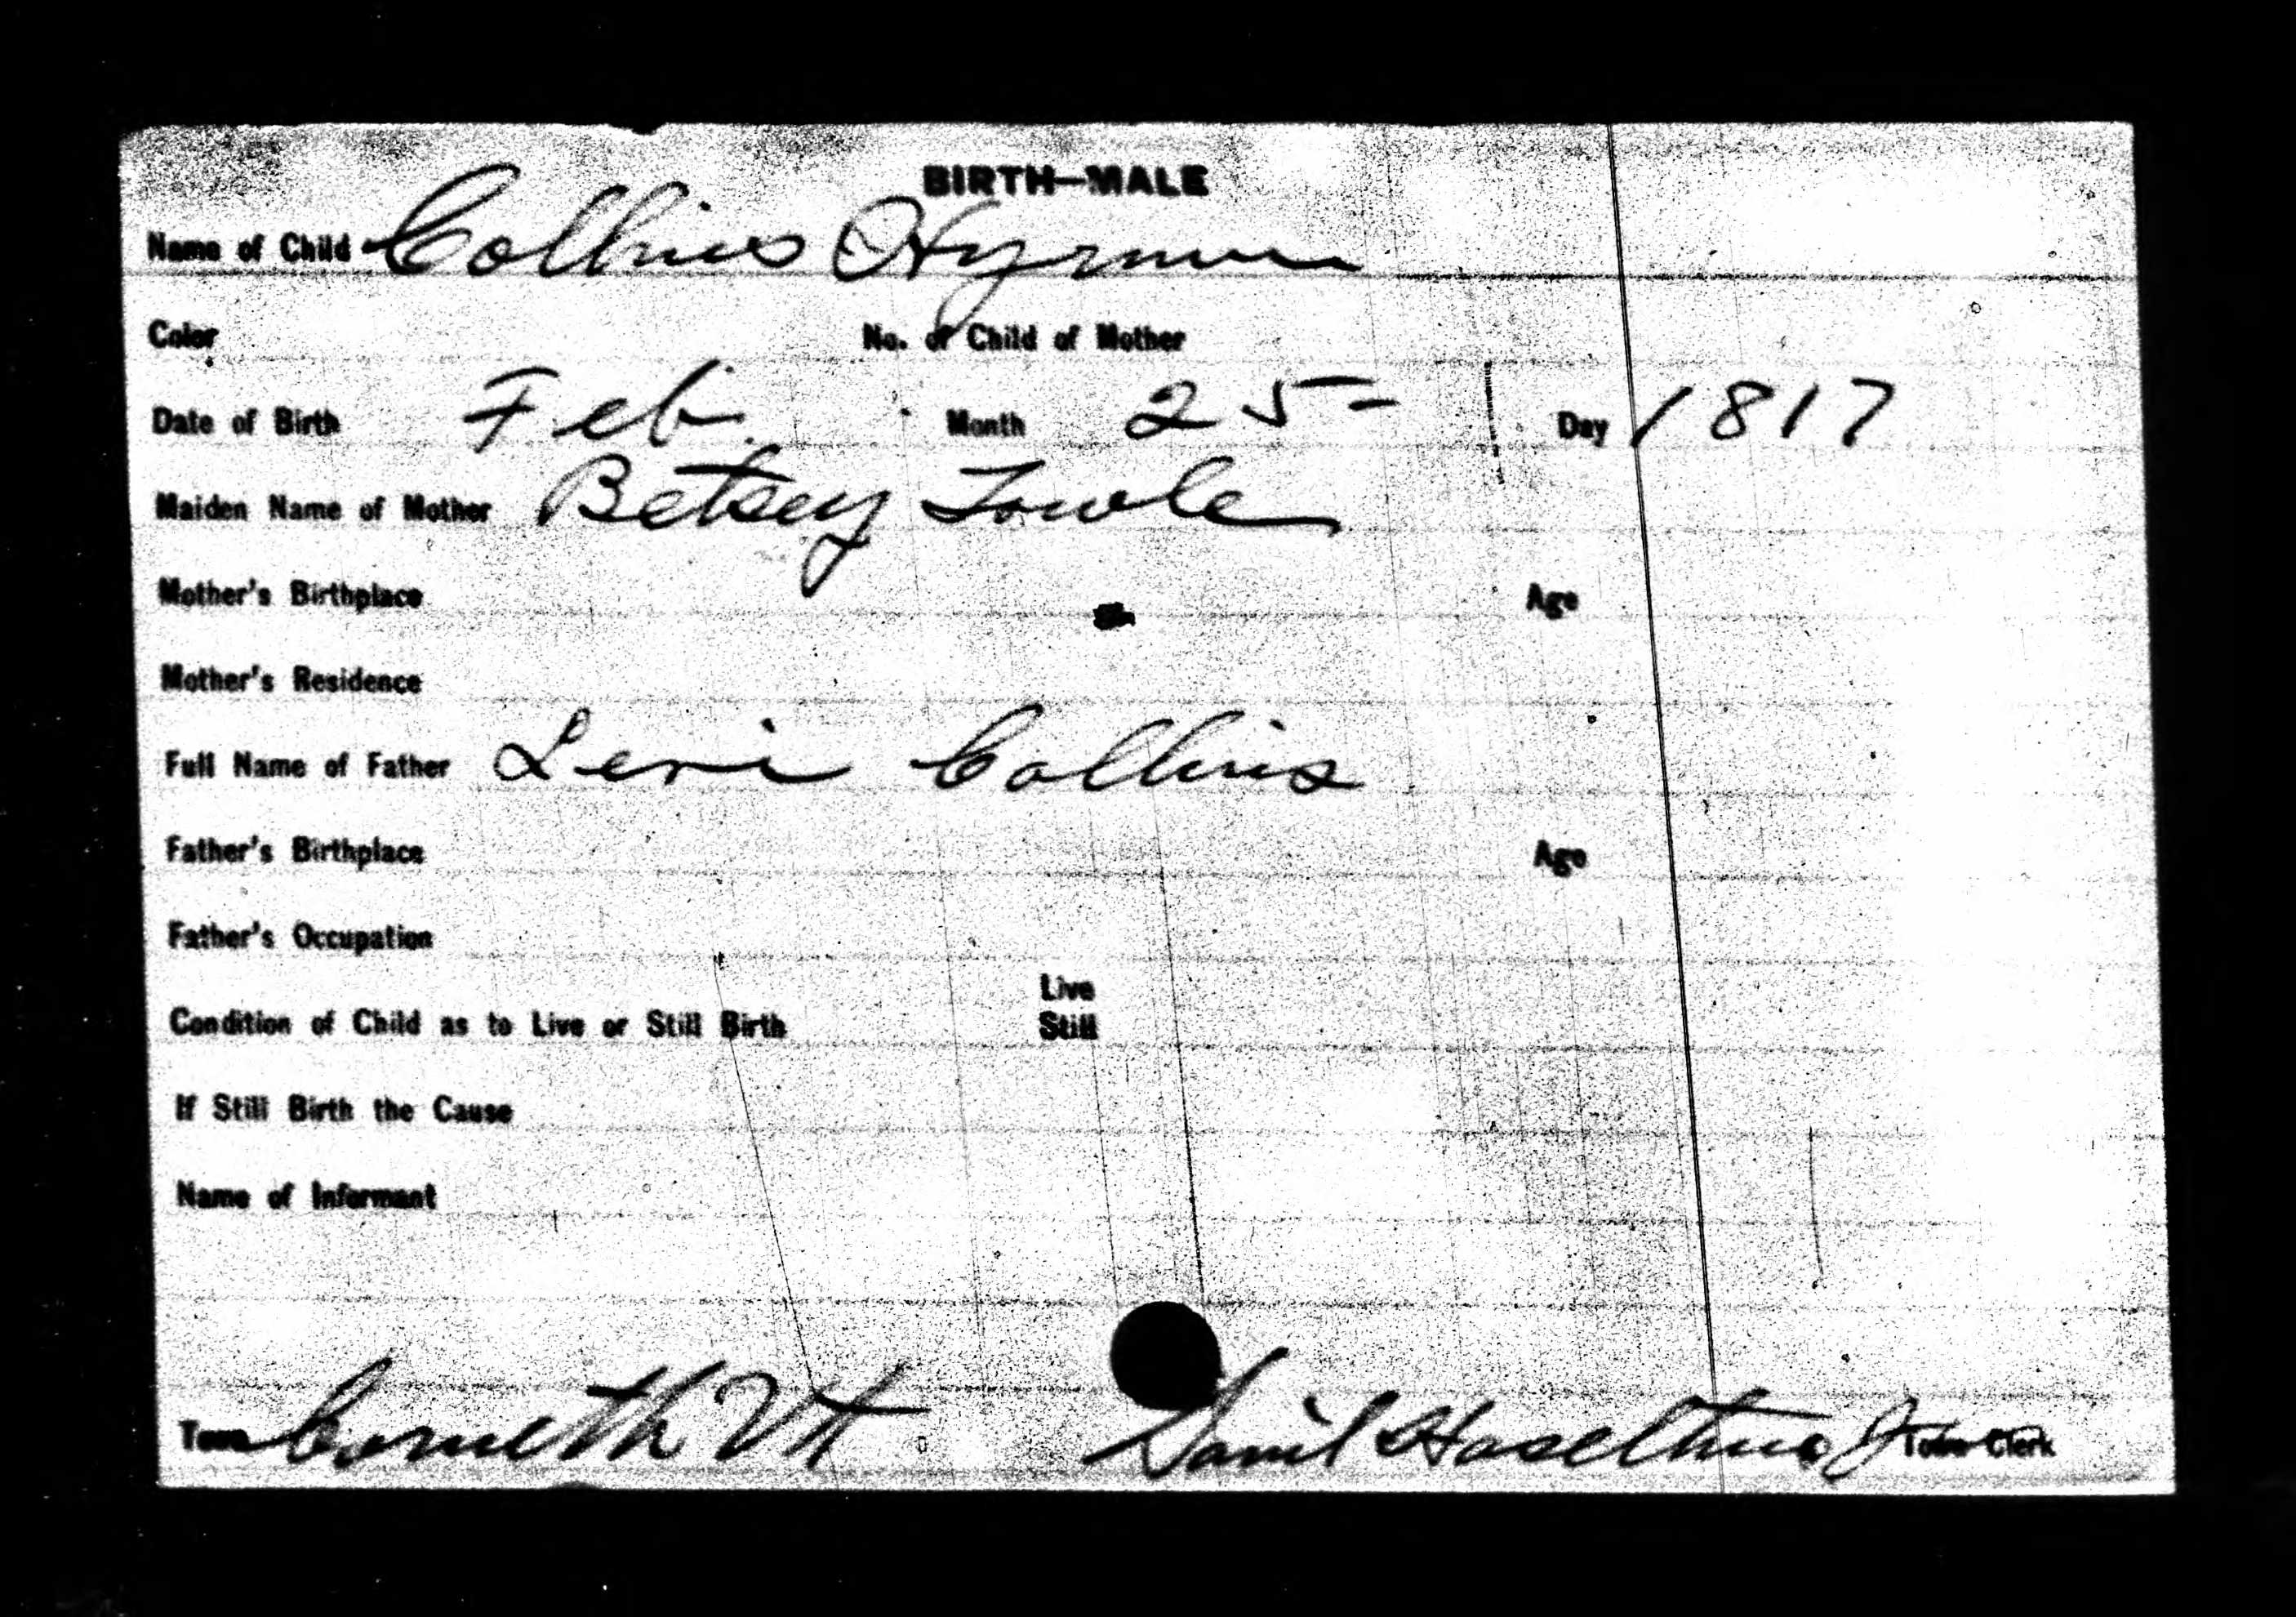 BIRTH—MALE
Name of Child Collins Hyrum
Color No. of Child of Mother
Date of Birth Feb. Month 25- Day 1817
Maiden Name of Mother Betsey Towle
Mother's Birthplace Age
Mother's Residence
Full Name of Father Levi Collins
Father's Birthplace Age
Father's Occupation
Live
Condition of Child as to Live or Still Birth Still
If Still Birth the Cause
Name of Informant
Town Corneth Vtt Haseltine Town Clerk